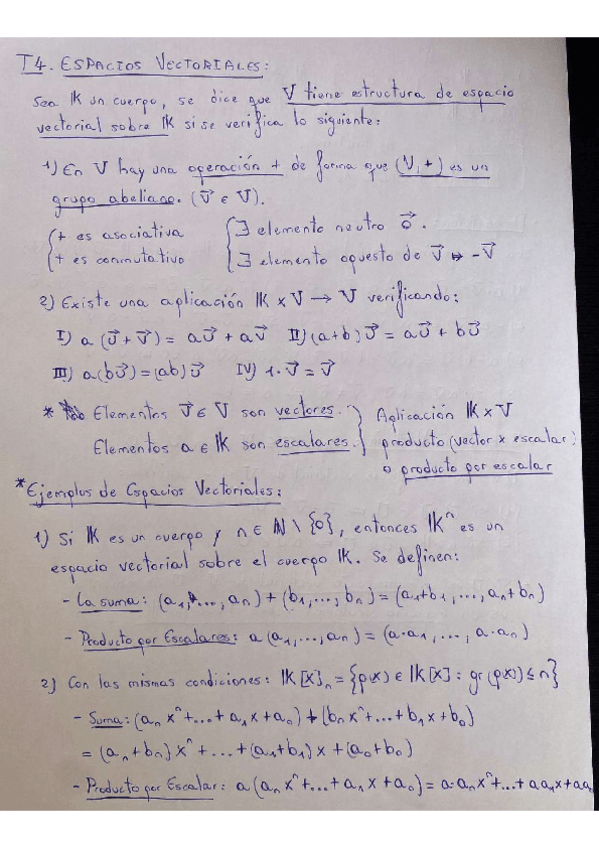 T4. ESPACIOS VECTORIALES:
Sea K un cuerpo, se dice que V tiene estructura de espacio
vectorial sobre K si se verifica lo siguiente:
1) En V hay una operación + de forma que (V, +) es un
grupo abeliano. (v⃗ ∈ V).
{ + es asociativa { ∃ elemento neutro 0⃗.
{ + es conmutativo { ∃ elemento opuesto de v⃗ ↦ -v⃗
2) Existe una aplicación K x V → V verificando:
I) a(v⃗ + v⃗) = av⃗ + av⃗ II) (a+b)v⃗ = av⃗ + bv⃗
III) a(bv⃗) = (ab)v⃗ IV) 1·v⃗ = v⃗
* Elementos v⃗ ∈ V son vectores. } Aplicación K x V
Elementos a ∈ K son escalares. } producto (vector x escalar)
o producto por escalar
* Ejemplos de Espacios Vectoriales:
1) Si K es un cuerpo y n ∈ N \ {0}, entonces Kⁿ es un
espacio vectorial sobre el cuerpo K. Se definen:
- La suma: (a₁, ..., aₙ) + (b₁, ..., bₙ) = (a₁+b₁, ..., aₙ+bₙ)
- Producto por Escalares: a(a₁, ..., aₙ) = (a·a₁, ..., a·aₙ)
2) Con las mismas condiciones: K[x]ₙ = {p(x) ∈ K[x] : gr(p(x)) ≤ n}
- Suma: (aₙxⁿ + ... + a₁x + a₀) + (bₙxⁿ + ... + b₁x + b₀)
= (aₙ+bₙ)xⁿ + ... + (a₁+b₁)x + (a₀+b₀)
- Producto por Escalar: a(aₙxⁿ + ... + a₁x + a₀) = a·aₙxⁿ + ... + aa₁x + aa₀